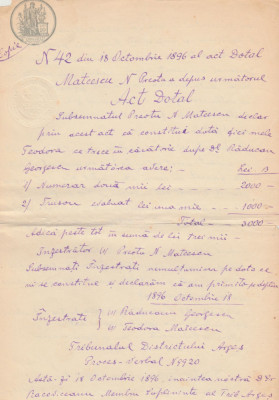 Copie
N 42 din 18 Octombrie 1896 al act Dotal
Mateescu N Preotu a depus următorul
Act Dotal
Subsemnatul Preotu N Mateescu declar
prin acest act că constitui dotă fiicei mele
Teodora ce trece în căsătorie după Dl Răducan
Georgescu următorea avere: - Lei B
1) Numerar două mii lei - 2000 -
2) Trusou evaluat lei una mie - 1000 -
Total - 3000 -
Adică peste tot în sumă de lei trei mii -
Înzestrător (ss) Preotu N Mateescu
Subsemnați Înzestrați
că am primit
1896 Octombrie 18
Înzestrați (ss) Răducanu Georgescu
(ss) Teodora Mateescu
Tribunalul Districtului Argeș
Proces-Verbal N 9920
Astă-zi 18 Octombrie 1896, înaintea nóstră D. Gr.
Membru Suplinte al Trib. Argeș